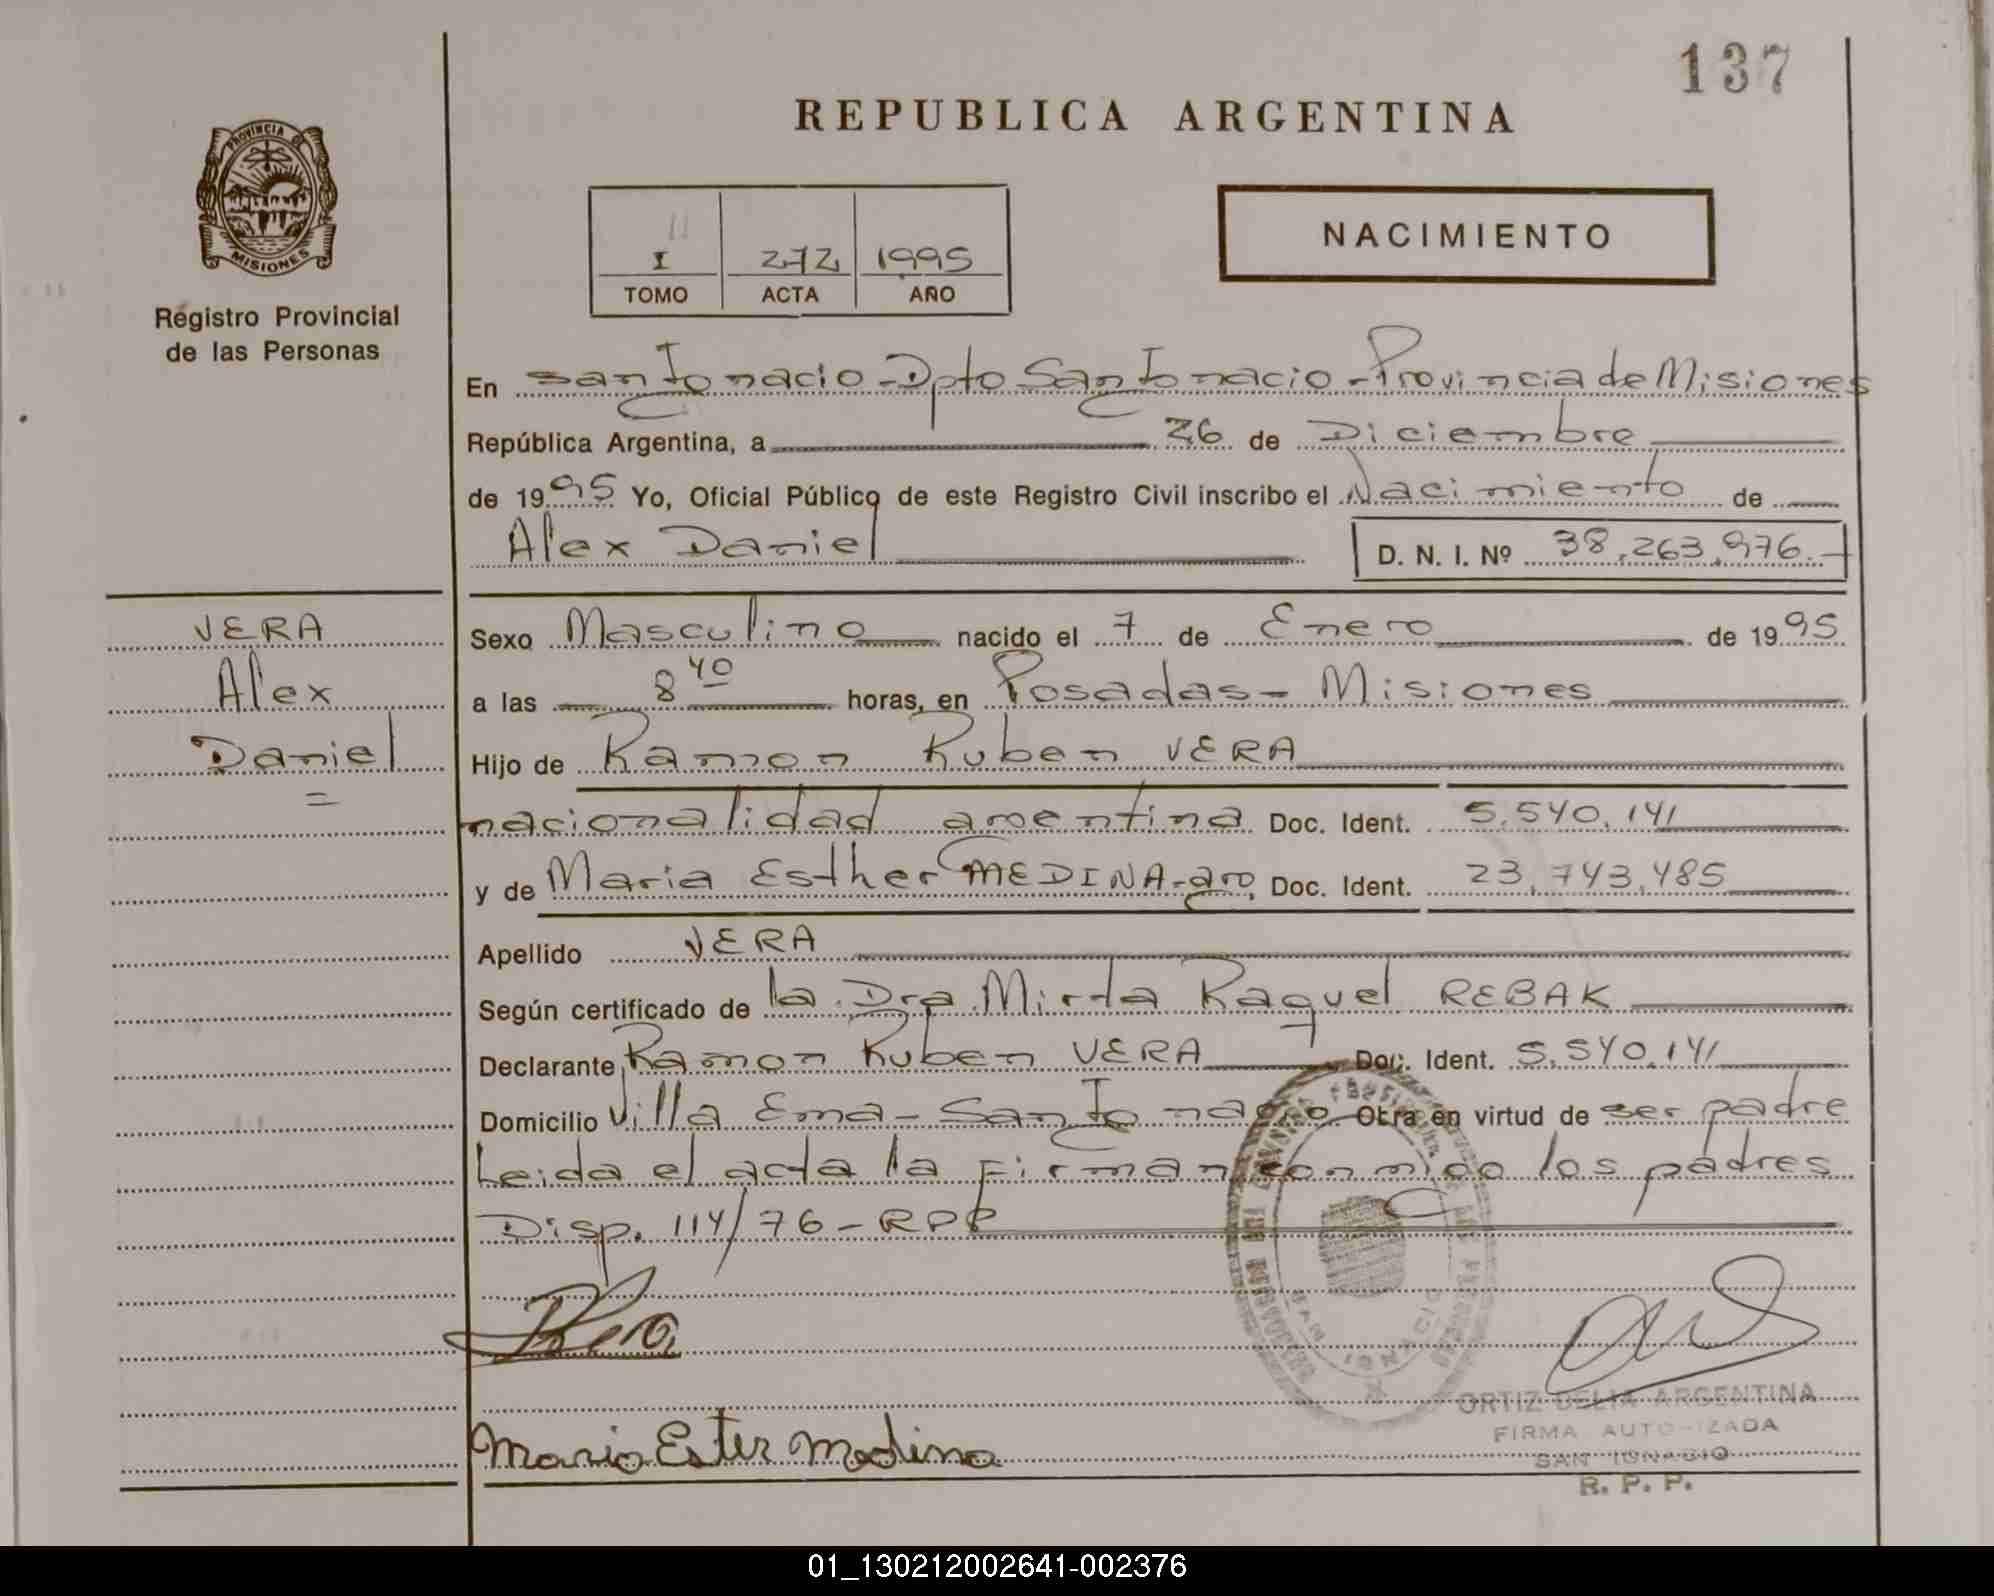 137
REPUBLICA ARGENTINA
PROVINCIA DE
MISIONES
Registro Provincial
de las Personas
I 272 1995
TOMO ACTA AÑO
NACIMIENTO
En San Ignacio - Dpto San Ignacio - Provincia de Misiones
República Argentina, a 26 de Diciembre
de 1995 Yo, Oficial Público de este Registro Civil inscribo el Nacimiento de
Alex Daniel D. N. I. Nº 38.263.976.-
VERA
Alex
Daniel
=
Sexo Masculino nacido el 7 de Enero de 1995
a las 8 40 horas, en Posadas - Misiones
Hijo de Ramon Ruben VERA
nacionalidad argentina Doc. Ident. 5.540.141
y de Maria Esther MEDINA - arg, Doc. Ident. 23.743.485
Apellido VERA
Según certificado de la Dra Mirta Raquel REBAK
Declarante Ramon Ruben VERA Doc. Ident. 5.540.141
Domicilio Villa Ema - San Ignacio Obra en virtud de ser padre
Leida el acta la firman conmigo los padres
Disp. 114/76 - RPP
SAN IGNACIO
Maria Ester Medina
ORTIZ DELIA ARGENTINA
FIRMA AUTORIZADA
SAN IGNACIO
R. P. P.
01_130212002641-002376